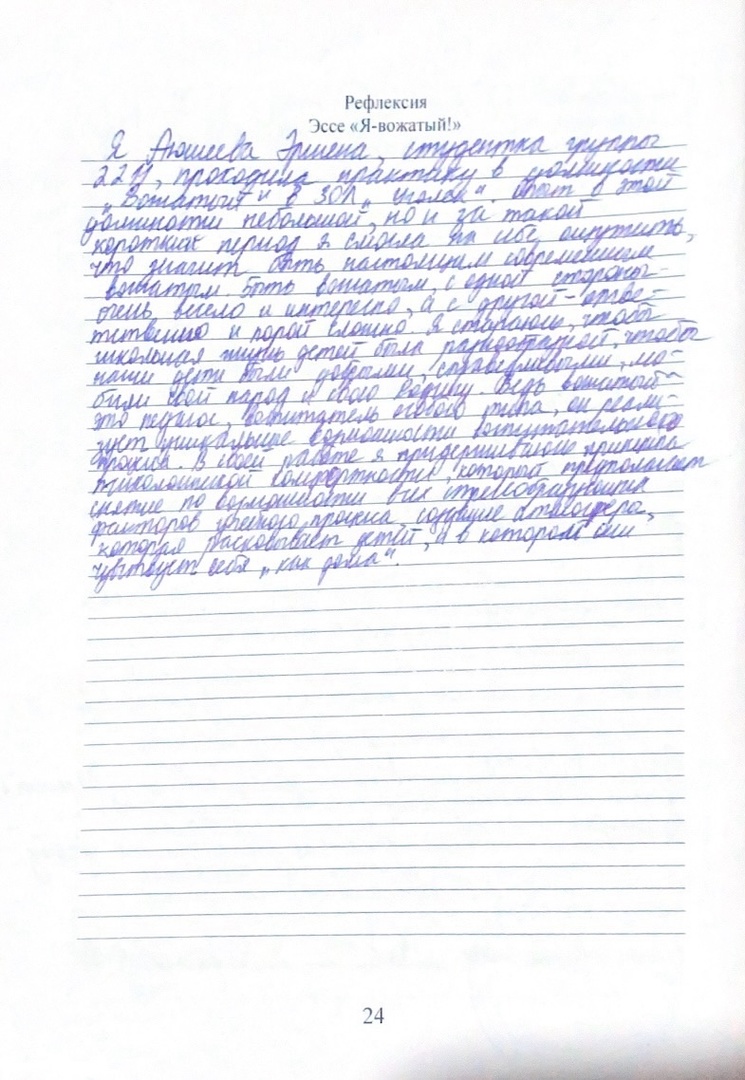 Рефлексия
Эссе «Я-вожатый!»
Я Аюшеева Эржена, студентка группы
2211, проходила практику в должности
„Вожатый" в ЗОЛ „Уголек". Опыт в этой
должности небольшой, но и за такой
короткий период я смогла на себе ощутить,
что значит быть настоящим современным
вожатым. Быть вожатым, с одной стороны-
очень весело и интересно, а с другой - ответ-
ственно и порой сложно. Я стараюсь, чтобы
школьная жизнь детей была разнообразной, чтобы
наши дети были добрыми, справедливыми, лю-
били свой народ и свою Родину. Ведь вожатый-
это педагог, воспитатель особого типа, он реали-
зует уникальные возможности воспитательного
процесса. В своей работе я придерживаюсь принципа
психологической комфортности, который предполагает
снятие по возможности всех стрессобразующих
факторов учебного процесса, создание атмосфера,
которая расковывает детей, а в котором они
чувствует себя „как дома".
24